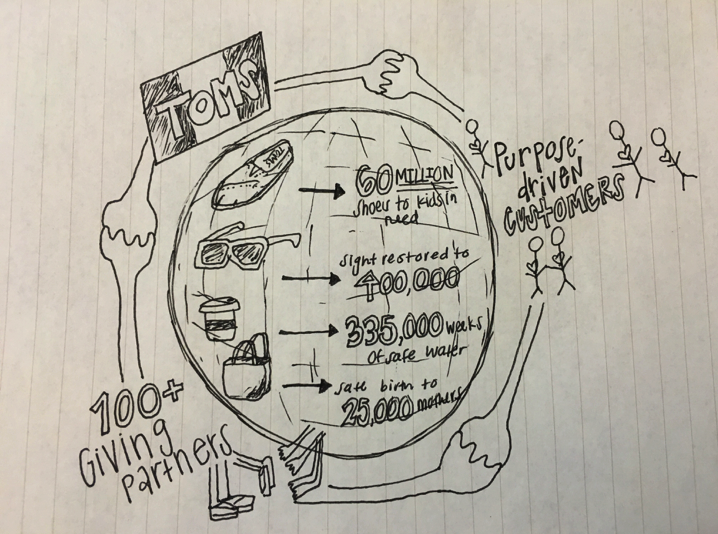 TOMS
TOMS
60 MILLION
shoes to kids in
need
sight restored to
400,000
335,000 weeks
of safe water
safe birth to
25,000 mothers
Purpose-
driven
CUSTOMERS
100+
Giving
Partners